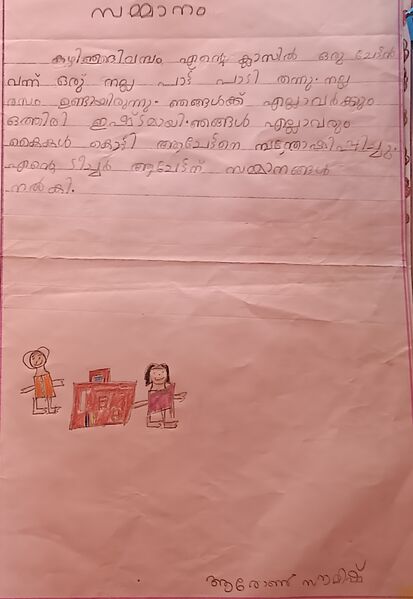 സമ്മാനം
കഴിഞ്ഞദിവസം എന്റെ ക്ലാസിൽ ഒരു ചേട്ടൻ
വന്ന് ഒരു നല്ല പാട്ട് പാടി തന്നു. നല്ല
രസം ഉണ്ടായിരുന്നു. ഞങ്ങൾക്ക് എല്ലാവർക്കും
ഒത്തിരി ഇഷ്ട്ടമായി. ഞങ്ങൾ എല്ലാവരും
കൈകൾ കൊട്ടി ആചേട്ടനെ സന്തോഷിപ്പിച്ചു.
എന്റെ ടീച്ചർ ആചേട്ടന് സമ്മാനങ്ങൾ
നൽകി.
ആരോൺ